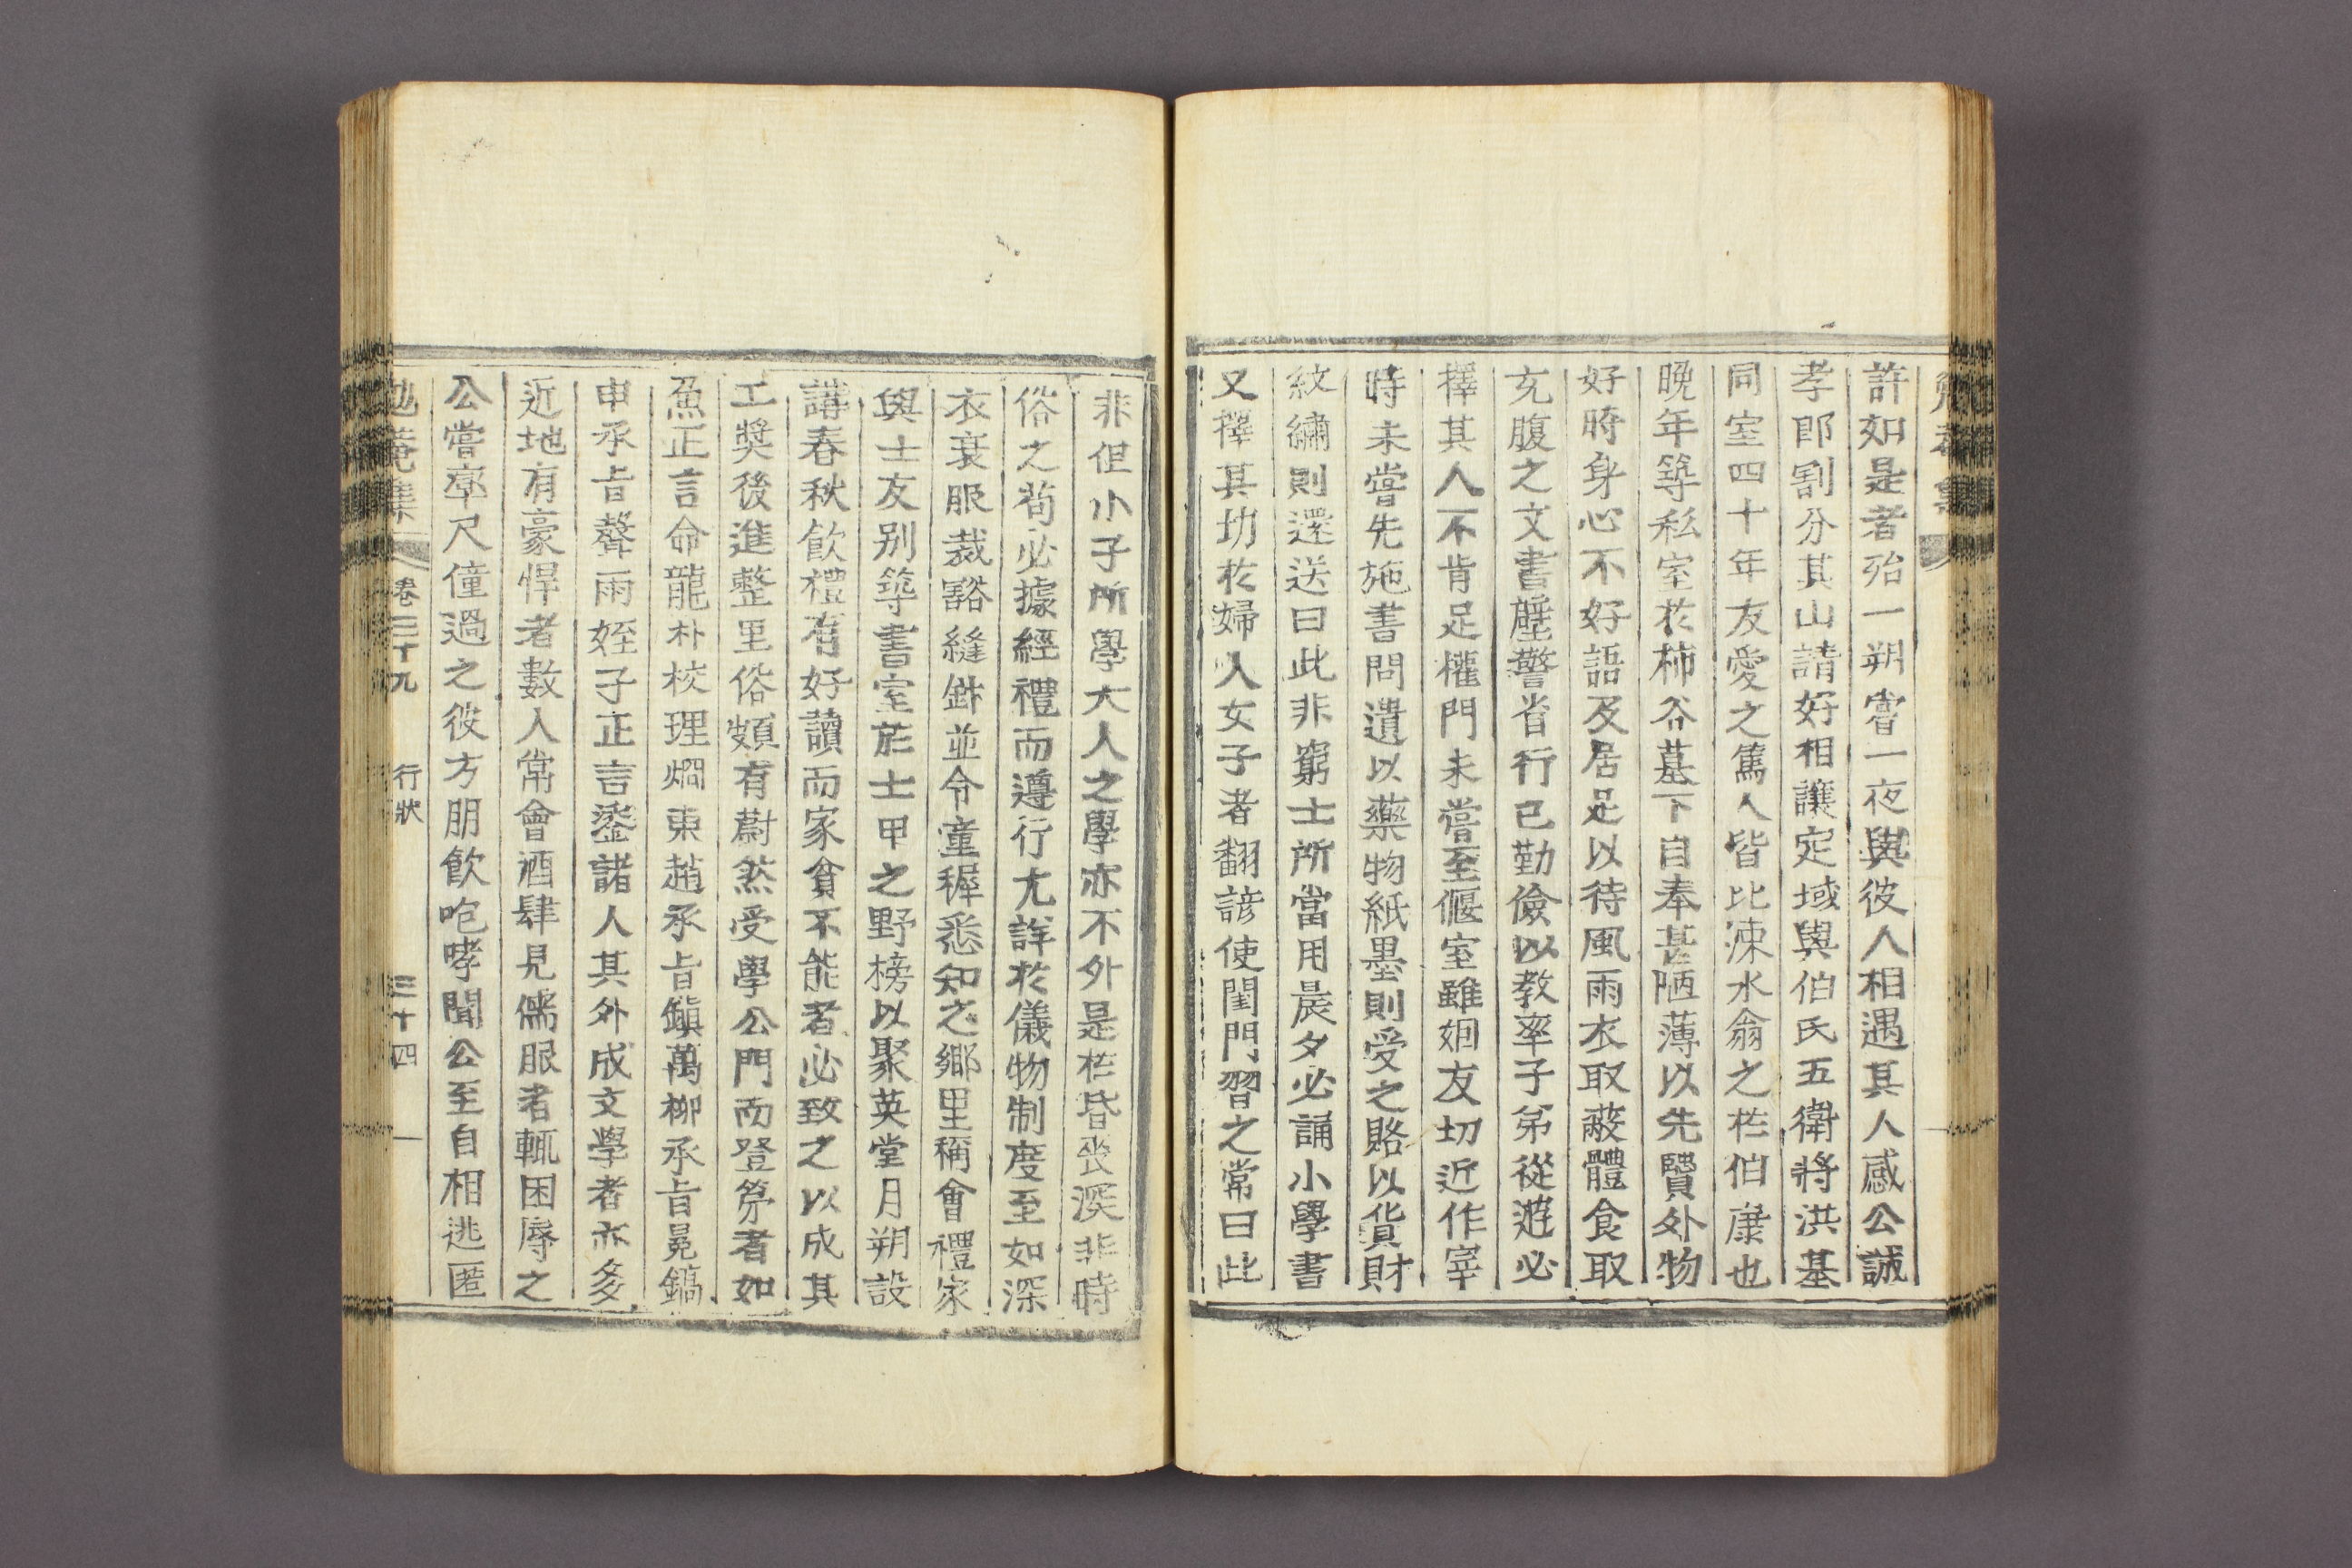 勉菴集
許如是者殆一朔嘗一夜與彼人相遇其人感公誠
孝卽割分其山請好相讓定域與伯氏五衛將洪基
同室四十年友愛之篤人皆比涑水翁之於伯康也
晩年等私室於柿谷墓下自奉甚陋薄以先賢外物
好時身心不好語及居足以待風雨衣取蔽體食取
充腹之文書壁警省行己勤儉以敎率子弟從遊必
擇其人不肯足權門未嘗至偃室雖姻友切近作宰
時未嘗先施書問遺以藥物紙墨則受之賂以貨財
紋繡則還送曰此非窮士所當用晨夕必誦小學書
又擇其切於婦人女子者翻諺使閨門習之常曰此
非但小子所學大人之學亦不外是於昏喪深非時
俗之苟必據經禮而遵行尤詳於儀物制度至如深
衣衰服裁豁縫針並令童穉悉知之鄕里稱會禮家
與士友別築書室於士甲之野榜以聚英堂月朔設
講春秋飮禮有好讀而家貧不能者必致之以成其
工奬後進整里俗頗有蔚然受學公門而登第者如
魚正言命龍朴校理烱東趙承旨鎭萬柳承旨冕鎬
申承旨聲雨姪子正言鎏諸人其外成文學者亦多
近地有豪悍者數人常會酒肆見儒服者輒困辱之
公嘗率尺僮過之彼方朋飮咆哮聞公至自相逃匿
勉菴集 卷三十九 行狀 三十四